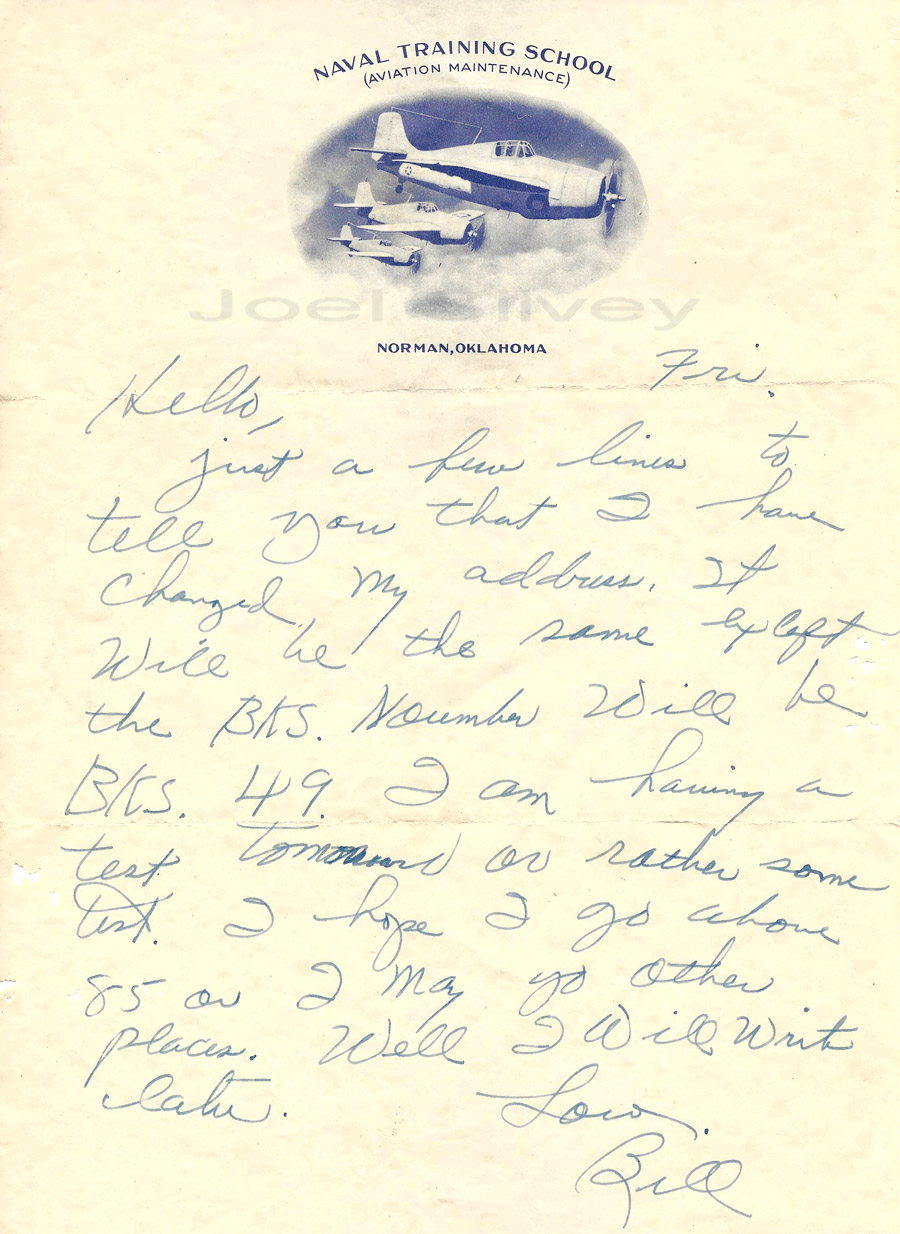 NAVAL TRAINING SCHOOL
(AVIATION MAINTENANCE)
Joel Gilvey
NORMAN, OKLAHOMA
Fri.
Hello,
just a few lines to
tell you that I have
changed My address. It
Will be the same except
the BKS. Noumber Will be
BKS. 49. I am having a
test tomorrow or rather some
test. I hope I go above
85 or I May go other
places. Well I Will Write
later.
Love.
Bill